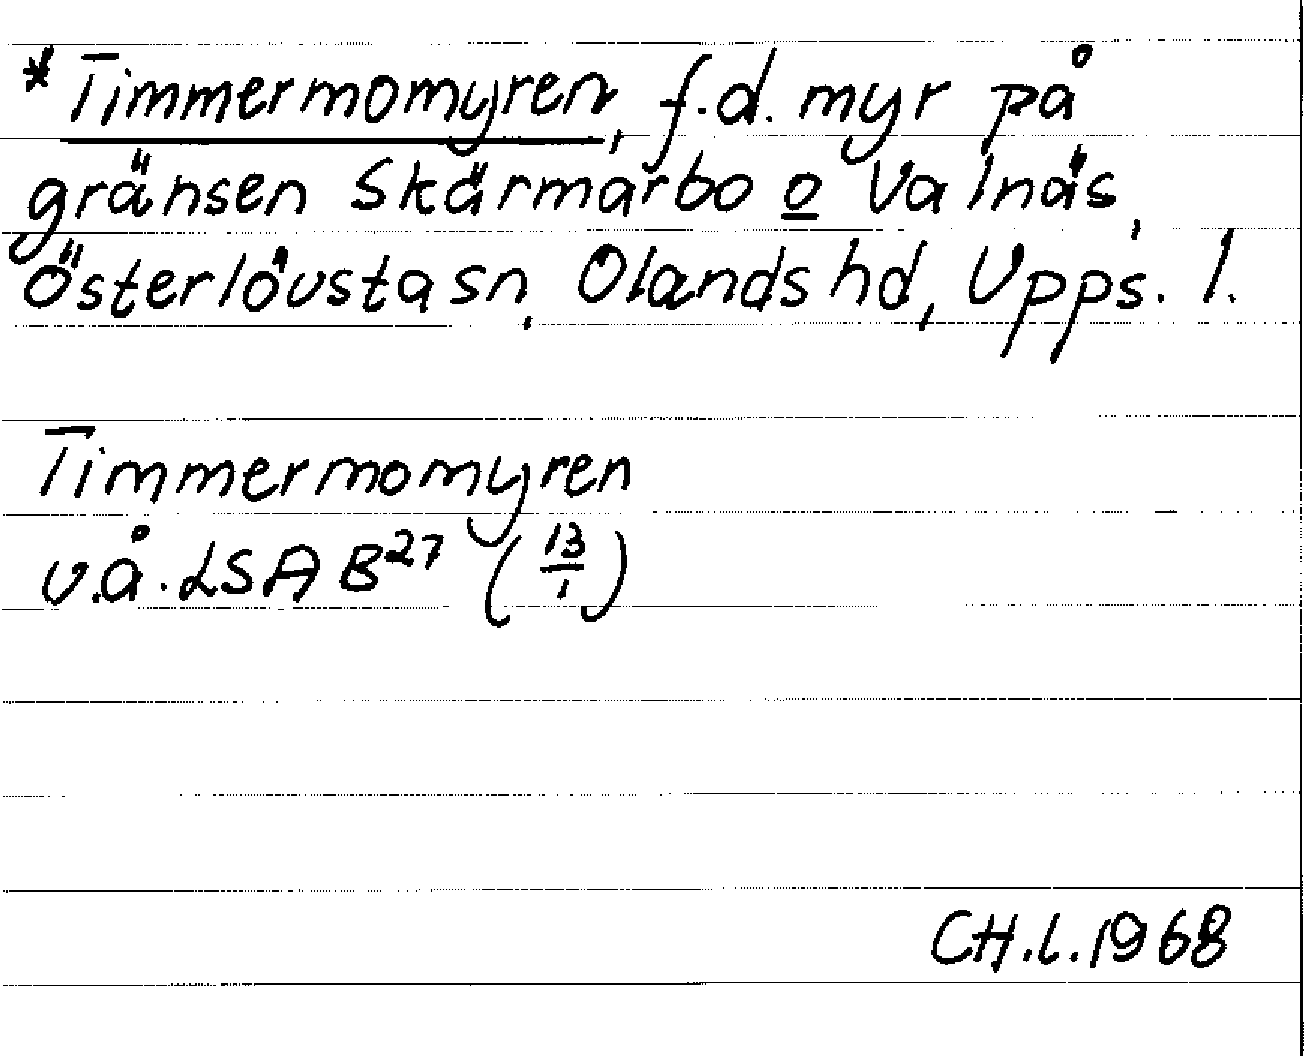 *Timmermomyren, f.d. myr på
gränsen Skärmarbo o Valnäs,
Österlövsta sn, Olands hd, Upps. l.
Timmermomyren
v.å. LSA B²⁷ (13/1)
CH.l. 1968